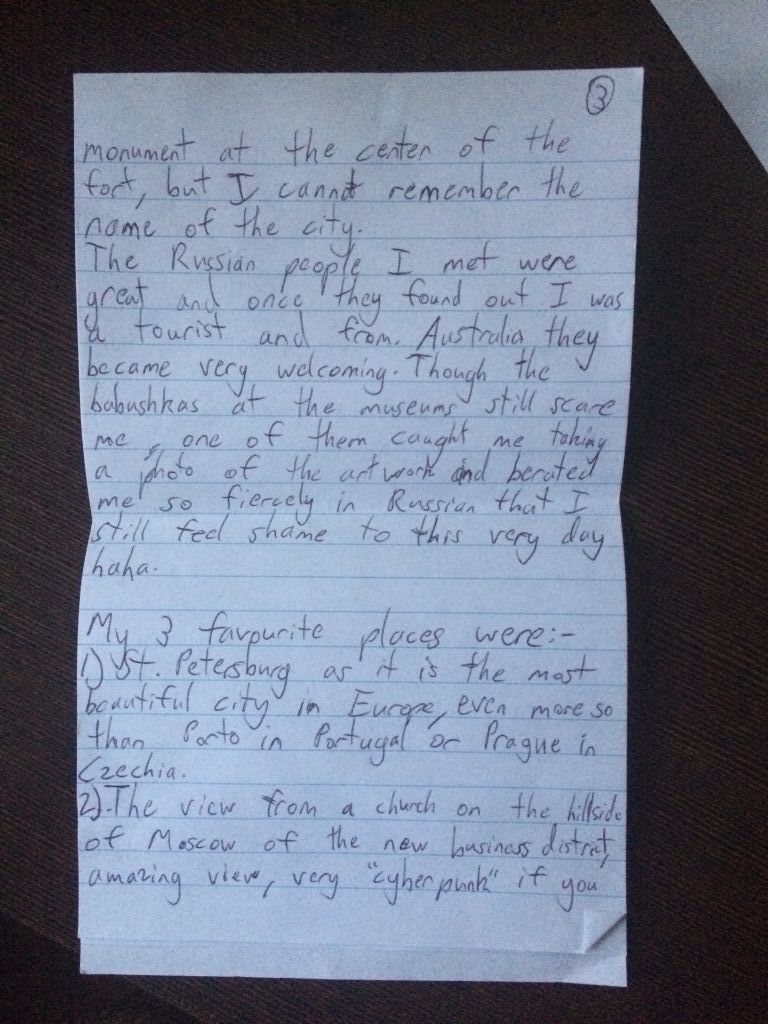 3
monument at the center of the
fort, but I cannot remember the
name of the city.
The Russian people I met were
great and once they found out I was
a tourist and from. Australia they
became very welcoming. Though the
babushkas at the museums still scare
me, one of them caught me taking
a photo of the artwork and berated
me so fiercely in Russian that I
still feel shame to this very day
haha.
My 3 favourite places were:-
1) St. Petersburg as it is the most
beautiful city in Europe, even more so
than Porto in Portugal or Prague in
Czechia.
2). The view from a church on the hillside
of Moscow of the new business district,
amazing view, very "cyberpunk" if you